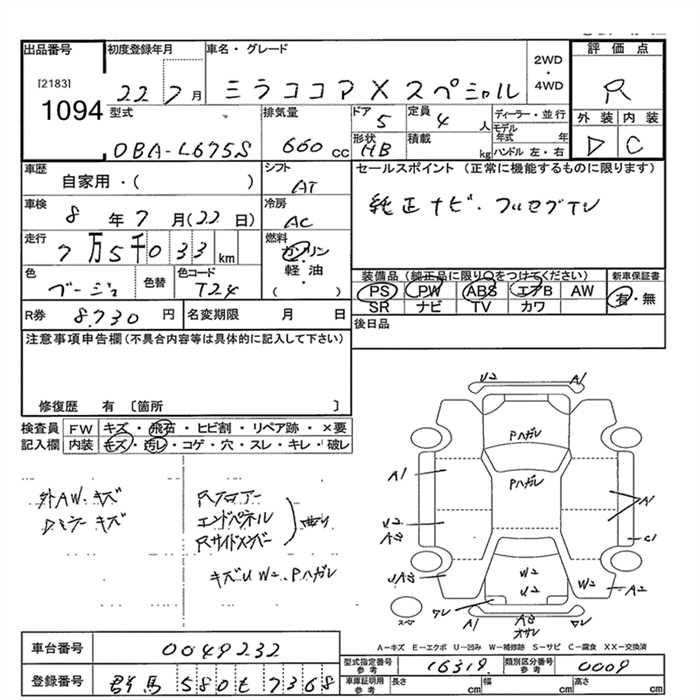 出品番号 初度登録年月 車名・グレード 評価点
[2183]
1094
22 7月 ミラココアXスペシャル 2WD・4WD R
型式 排気量 ドア 5 定員 4人 ディーラー・並行 外装 内装
DBA-L675S 660cc 形状 HB 積載 kg モデル年式 年 ハンドル 左・右 D C
車歴 シフト セールスポイント (正常に機能するものに限ります)
自家用・( ) AT
純正ナビ・フルセグTV
車検 8年7月(22日) 冷房 AC
走行 7万5千033km 燃料 ガソリン・軽油 ( )
色 ベージュ 色替 色コード T24
装備品(純正品に限り○をつけてください) 新車保証書
PS PW ABS エアB AW 有・無
SR ナビ TV カワ
R券 8,730円 名変期限 月 日
後日品
注意事項申告欄(不具合内容等は具体的に記入して下さい)
修復歴 有〔箇所 〕
検査員 FW キズ・飛石・ヒビ割・リペア跡・×要
記入欄 内装 キズ・汚レ・コゲ・穴・スレ・キレ・破レ
外AW・キズ
Dミラーキズ
Rフロアー
エンドパネル
Rサイドメンバー
曲り
キズU W2、Pハガレ
U2 A1
Pハガレ
Pハガレ
A1 A1
U2
A3 C1
UA3 W2 W2 A2
U2
スペア
A3
車台番号 0049232
登録番号 群馬 580 せ 7368
A-キズ E-エクボ U-凹み W-補修跡 S-サビ C-腐食 XX-交換済
型式指定番号 参考 16319 類別区分番号 参考 0009
車庫証明用 参考 長さ cm 幅 cm 高さ cm